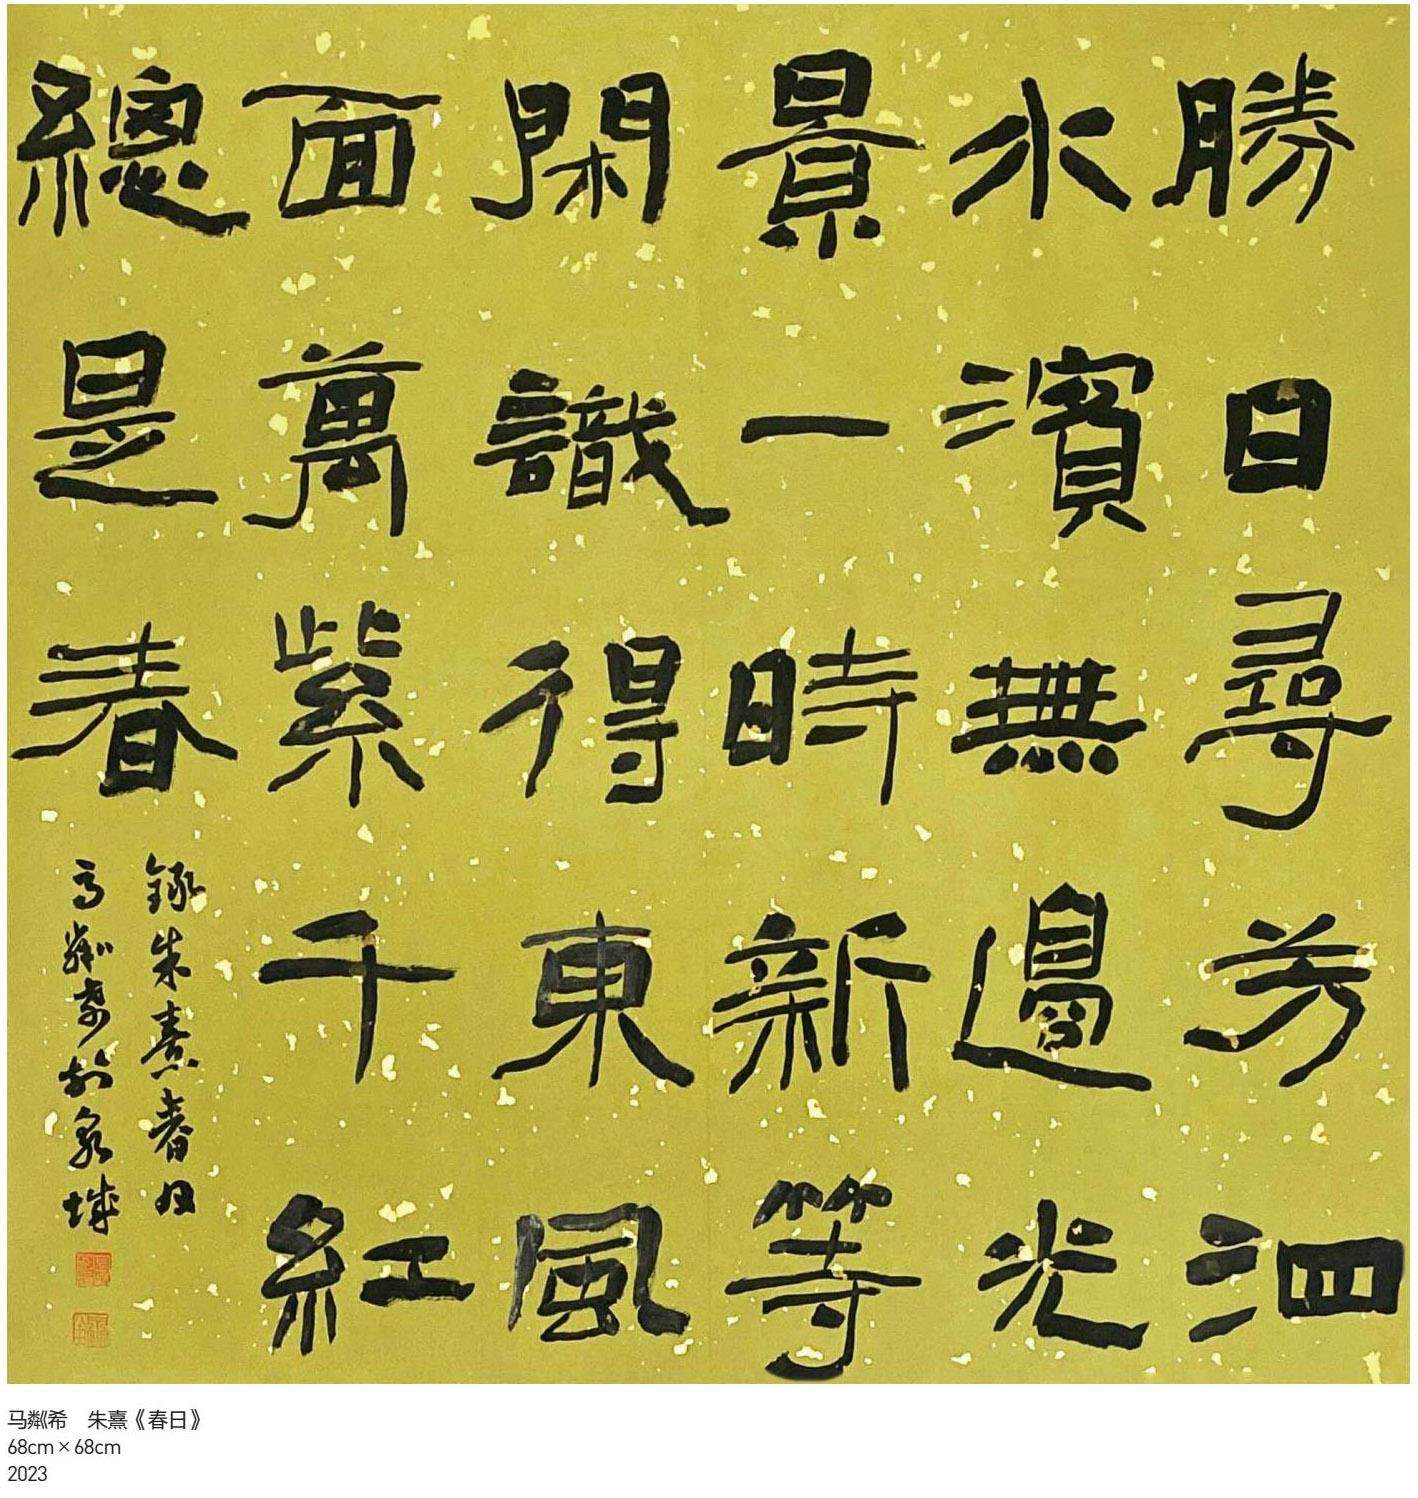 勝日尋芳泗
水濱無邊光
景一時新等
閑識得東風
面萬紫千紅
總是春
錄朱熹春日
馬粼希於泉城
马粼希 朱熹《春日》
68cm×68cm
2023